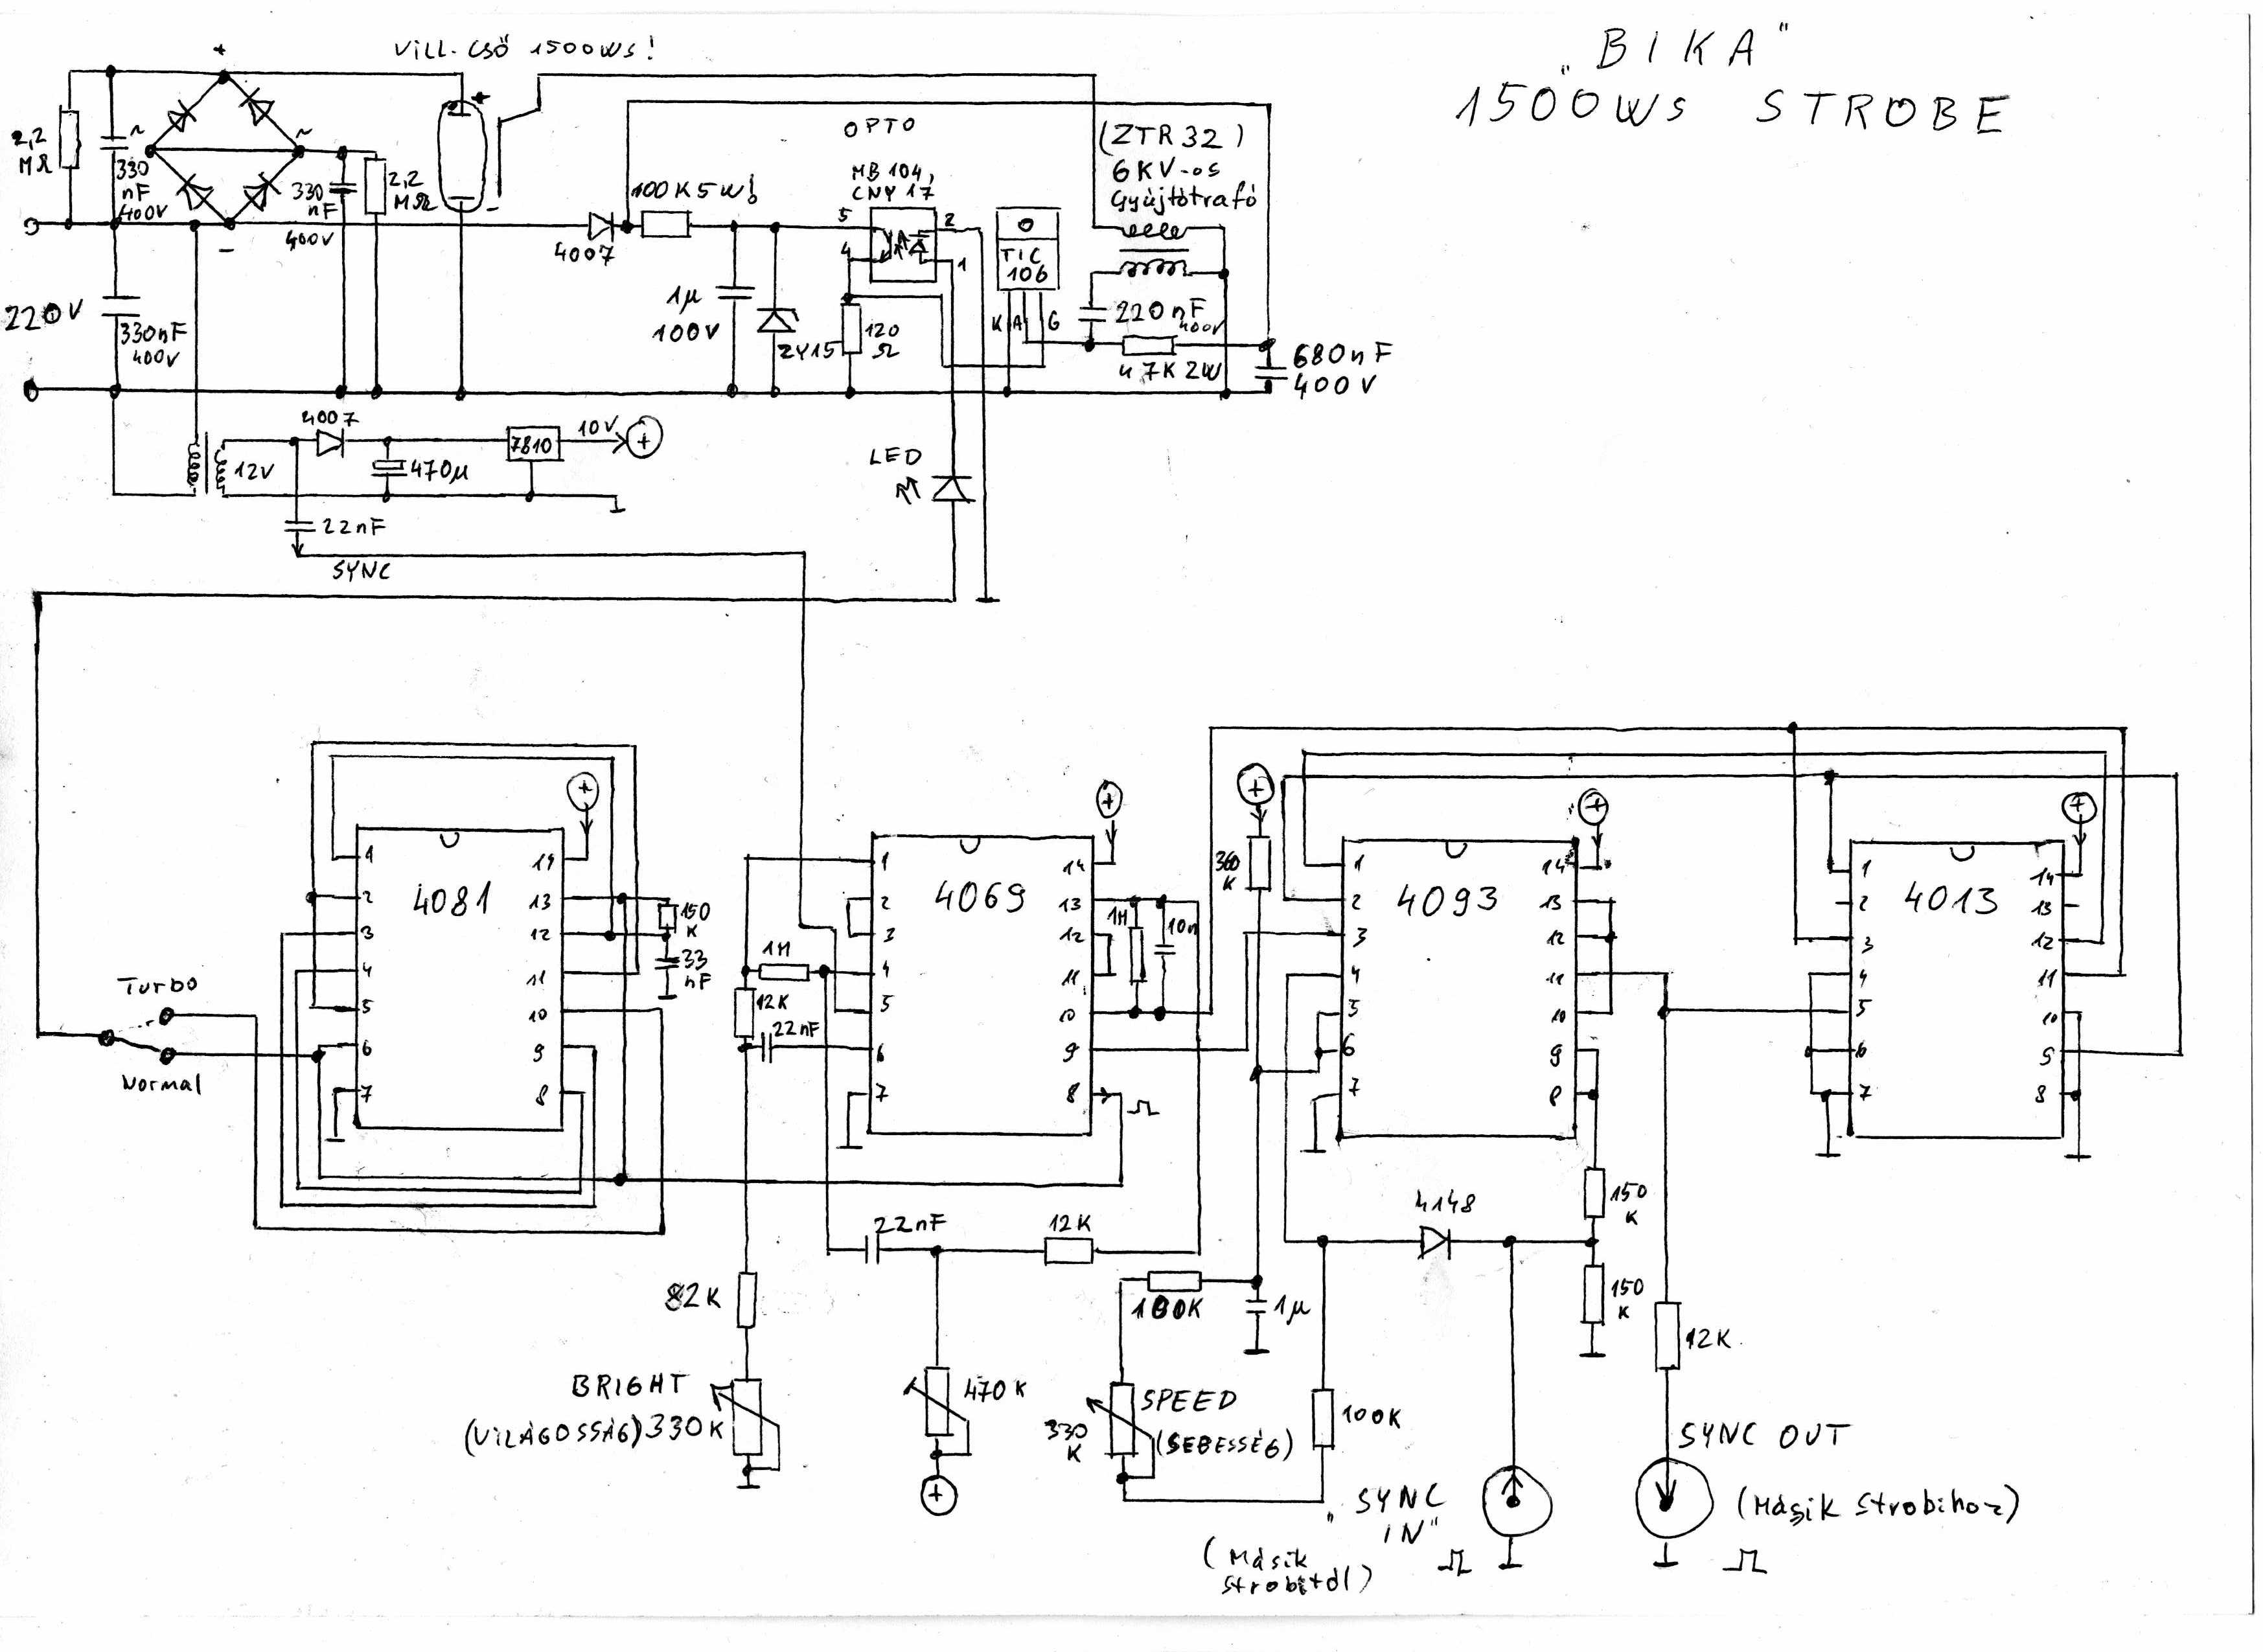 „BIKA"
1500WS STROBE
VILL. CSŐ 1500WS!
+
2,2
MΩ
~
330
nF
400V
~
330
nF
400V
2,2
MΩ
+
-
-
220V
330nF
400V
4007
100K 5W!
1µ
100V
ZY15
OPTO
MB104,
CNY17
5
4
2
1
120
Ω
TIC
106
K A G
(ZTR32)
6KV-os
Gyújtótrafó
220nF
400V
47K 2W
680nF
400V
12V
4007
470µ
7810
10V
+
22nF
SYNC
LED
Turbo
Normal
4081
1
2
3
4
5
6
7
14
13
12
11
10
9
8
+
150
K
33
nF
4069
1
2
3
4
5
6
7
14
13
12
11
10
9
8
+
1M
12K
22nF
1M
10n
+
360
K
4093
1
2
3
4
5
6
7
14
13
12
11
10
9
8
+
4013
1
2
3
4
5
6
7
14
13
12
11
10
9
8
+
82K
BRIGHT
(VILÁGOSSÁG) 330K
22nF
12K
470K
+
100K
1µ
330
K
SPEED
(SEBESSÉG)
100K
4148
150
K
150
K
12K
„SYNC
IN"
(Másik
strobitól)
SYNC OUT
(Másik strobihoz)